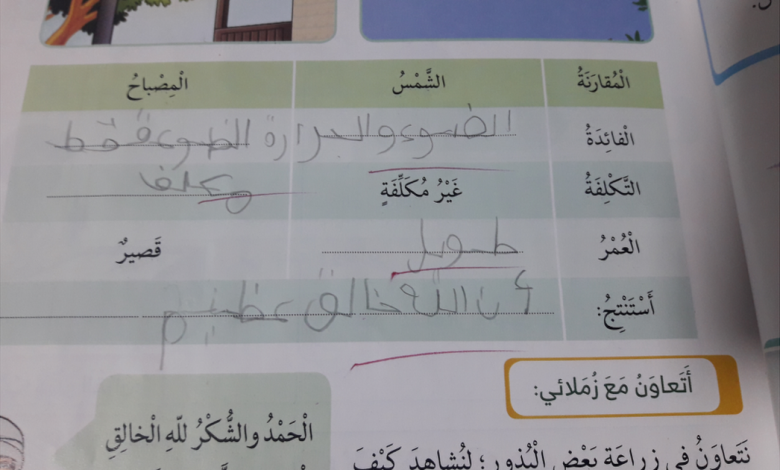 الْمُقارَنَةُ الشَّمْسُ الْمِصْباحُ
الْفائِدَةُ الضوء والحرارة الضوء فقط
التَّكْلِفَةُ غَيْرُ مُكَلِّفَةٍ مكلفا
الْعُمْرُ طويل قَصيرٌ
أَسْتَنْتِجُ: أن الله خالق عظيم
أَتَعاوَنُ مَعَ زُمَلائي:
الْحَمْدُ والشُّكْرُ للّهِ الْخالِقِ
نَتَعاوَنُ في زِراعَةِ بَعْضِ الْبُذورِ؛ لِنُشاهِدَ كَيْفَ